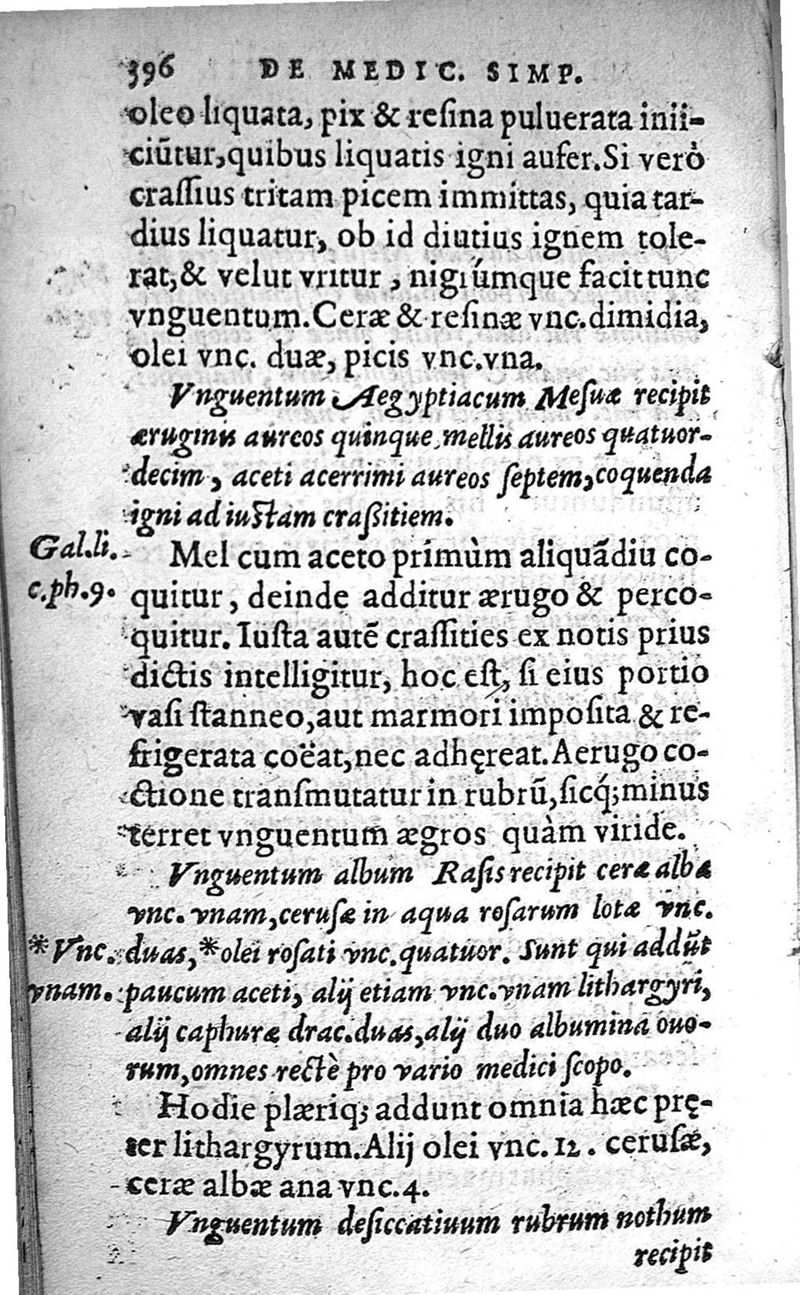 396 DE MEDIC. SIMP.
oleo liquata, pix & resina puluerata inii-
ciũtur, quibus liquatis igni aufer. Si verò
crassius tritam picem immittas, quia tar-
dius liquatur, ob id diutius ignem tole-
rat, & velut vritur, nigriúmque facit tunc
vnguentum. Ceræ & resinæ vnc. dimidia,
olei vnc. duæ, picis vnc. vna.
Vnguentum Aegyptiacum Mesuæ recipit
æruginis aureos quinque, mellis aureos quatuor-
decim, aceti acerrimi aureos septem, coquenda
igni ad iustam craßitiem.
Gal. li. c. ph. 9.
Mel cum aceto primùm aliquãdiu co-
quitur, deinde additur ærugo & perco-
quitur. Iusta autẽ crassities ex notis prius
dictis intelligitur, hoc est, si eius portio
vasi stanneo, aut marmori imposita & re-
frigerata coëat, nec adhęreat. Aerugo co-
ctione transmutatur in rubrũ, sicq́; minus
terret vnguentum ægros quàm viride.
Vnguentum album Rasis recipit ceræ albæ
vnc. vnam, cerusæ in aqua rosarum lotæ vnc.
*Vnc. vnam.
duas, *olei rosati vnc. quatuor. Sunt qui addũt
paucum aceti, alij etiam vnc. vnam lithargyri,
alij caphuræ drac. duas, alij duo albumina ouo-
rum, omnes rectè pro vario medici scopo.
Hodie plæriq; addunt omnia hæc prę-
ter lithargyrum. Alij olei vnc. 12. cerusæ,
ceræ albæ ana vnc. 4.
Vnguentum desiccatiuum rubrum nothum
recipit